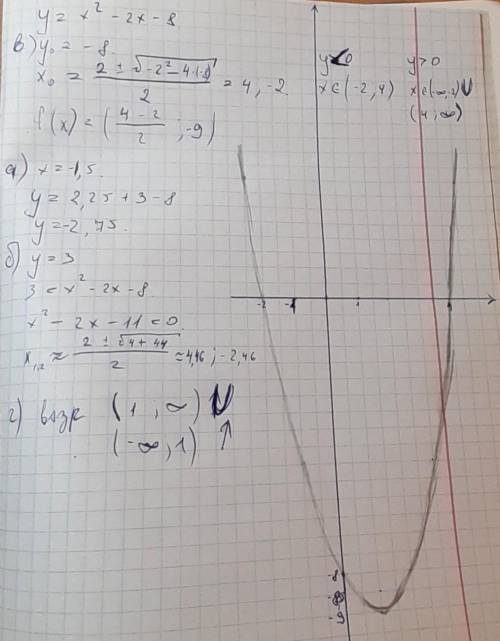 y = x² - 2x - 8
в) y₀ = -8.
x₀ = (2 ± √(-2² - 4·(-8)))/2 = 4, -2.
f(x) = ((4 - 2)/2 ; -9)
а) x = -1,5.
y = 2,25 + 3 - 8
y = -2,75.
б) y = 3
3 = x² - 2x - 8
x² - 2x - 11 = 0.
x₁,₂ ≈ (2 ± √(4 + 44))/2 ≈ 4,46 ; -2,46
г) возр (1, ∞)
(-∞, 1) ↑
y < 0
x ∈ (-2, 4)
y > 0
x ∈ (-∞, -2) ∪
(4, ∞)
-2 -1 4
-8
-9